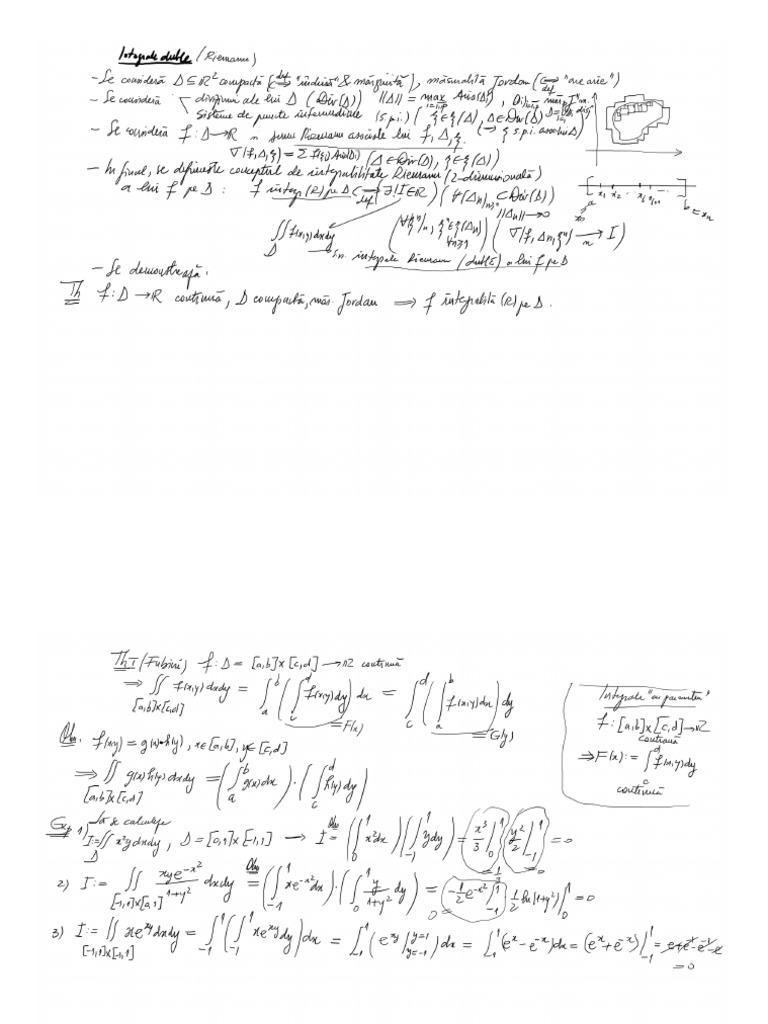 Integrale duble (Riemann)
- Se consideră D ⊆ R² compactă (⟺def "închisă" & mărginită), măsurabilă Jordan (⟺def "are arie")
- Se consideră diviziuni ale lui D (Div(D)) ||Δ|| = max Aria(Di),
Sisteme de puncte intermediare (s.p.i.) (ξ ∈ ξ(Δ), Δ ∈ Div(D)) (→ ξ s.p.i. asociat Δ)
- Se consideră f: D → R și sume Riemann asociate lui f, Δ, ξ.
∇(f, Δ, ξ) = Σ f(ξi) Aria(Di) (Δ ∈ Div(D), ξ ∈ ξ(Δ))
- În final, se definește conceptul de integrabilitate Riemann (2-dimensională)
a lui f pe D: f integr(R) pe D ⟺def ∃! I ∈ R) (∀(Δn)n≥1 ⊂ Div(D)) ||Δn|| → 0
a x1 x2 ... b = xn
∬ f(x,y)dxdy (∀ξⁿ)n, ξⁿ ∈ ξ(Δn) ∀n≥1) (∇(f, Δn, ξⁿ) →n I)
D s.n. integrala Riemann (dublă) a lui f pe D
- Se demonstrează.
Th f: D → R continuă, D compactă, măs. Jordan ⟹ f integrabilă (R) pe D.
Th1 (Fubini) f: D = [a,b]×[c,d] → R continuă
⟹ ∬ f(x,y)dxdy = ∫_a^b (∫_c^d f(x,y)dy) dx = ∫_c^d (∫_a^b f(x,y)dx) dy
[a,b]×[c,d] = F(x) = G(y)
Integrale "cu parametru"
f: [a,b]×[c,d] → R
continuă
⟹ F(x) := ∫_c^d f(x,y)dy
continuă
Obs. f(x,y) = g(x)·h(y), x∈[a,b], y∈[c,d]
⟹ ∬ g(x)h(y)dxdy = (∫_a^b g(x)dx)·(∫_c^d h(y)dy)
[a,b]×[c,d]
Ex. 1) Să se calculeze
I := ∬ x²y dxdy, D = [0,1]×[-1,1] → I =Obs (∫_0^1 x²dx)(∫_{-1}^1 ydy) = (x³/3 |_0^1)(y²/2 |_{-1}^1) = 0
D = 1/3 = 0
2) I := ∬ xye^{-x²}/(1+y²) dxdy =Obs (∫_{-1}^1 xe^{-x²}dx)·(∫_0^1 y/(1+y²) dy) = (-1/2 e^{-x²} |_{-1}^1) 1/2 ln(1+y²) |_0^1 = 0
[-1,1]×[0,1] 0 =
3) I := ∬ xe^{xy}dxdy = ∫_{-1}^1 (∫_{-1}^1 xe^{xy}dy)dx = ∫_{-1}^1 (e^{xy} |_{y=-1}^{y=1})dx = ∫_{-1}^1 (e^x - e^{-x})dx = (e^x + e^{-x}) |_{-1}^1 =
[-1,1]×[-1,1] = 0